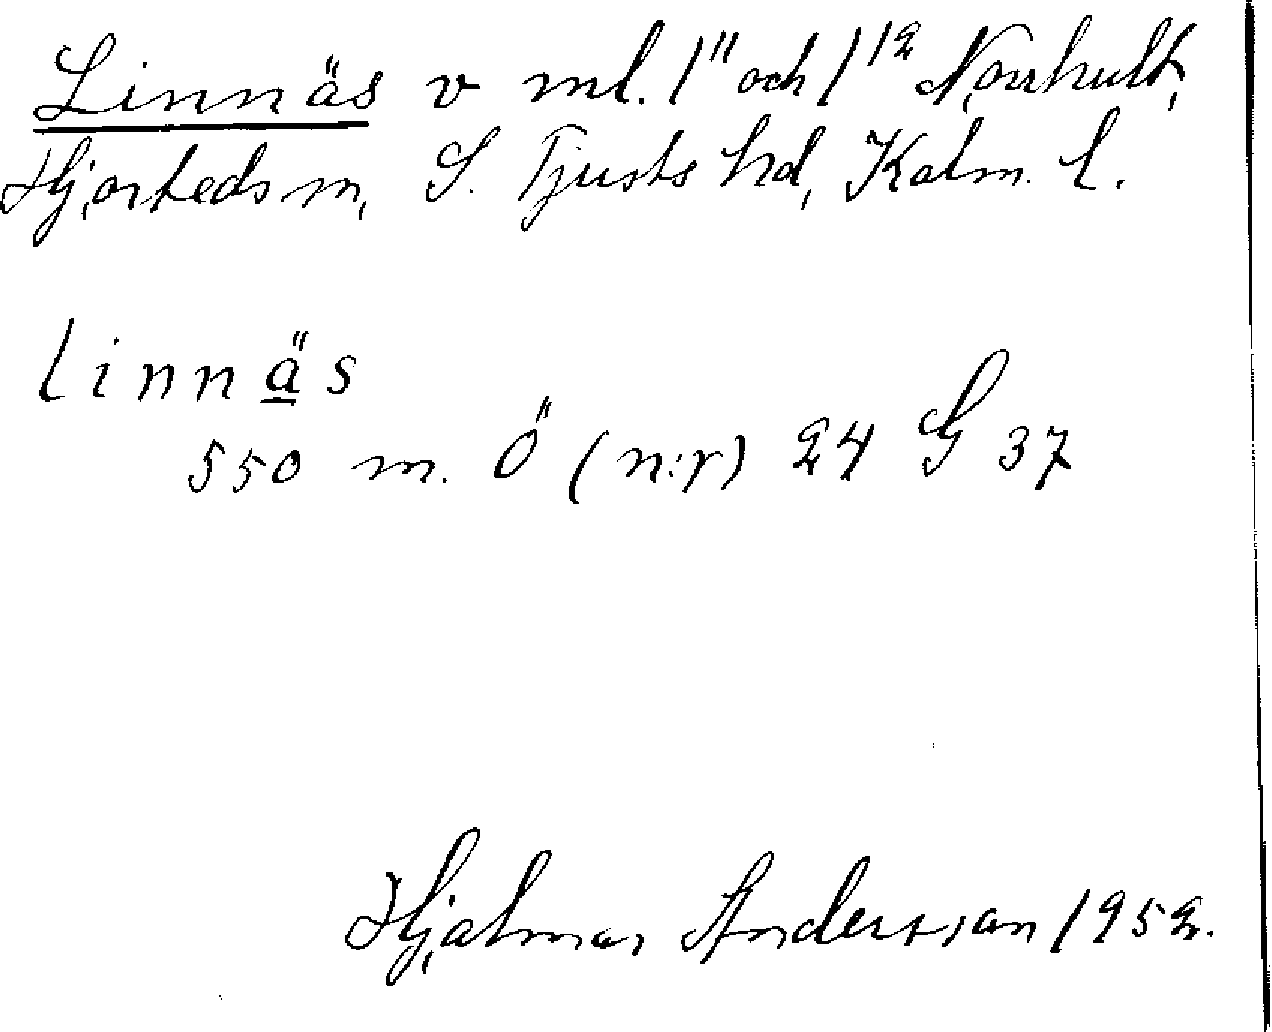 Linnäs v ml. 1¹¹ och 1¹² Norrhult,
Hjorteds sn, S. Tjusts hd, Kalm. l.
linnäs
550 m. Ö (n:r) 24 G 37
Hjalmar Andersson 1952.